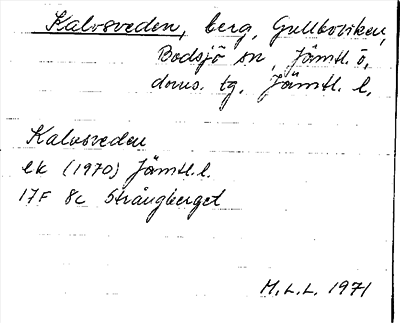 Kalvsveden, berg, Gullboviken,
Bodsjö sn, Jämtl. ö,
doms. tg. Jämtl. l.
Kalvsveden
ek (1970) Jämtl. l.
17F 8c Strångberget
M.L.L. 1971